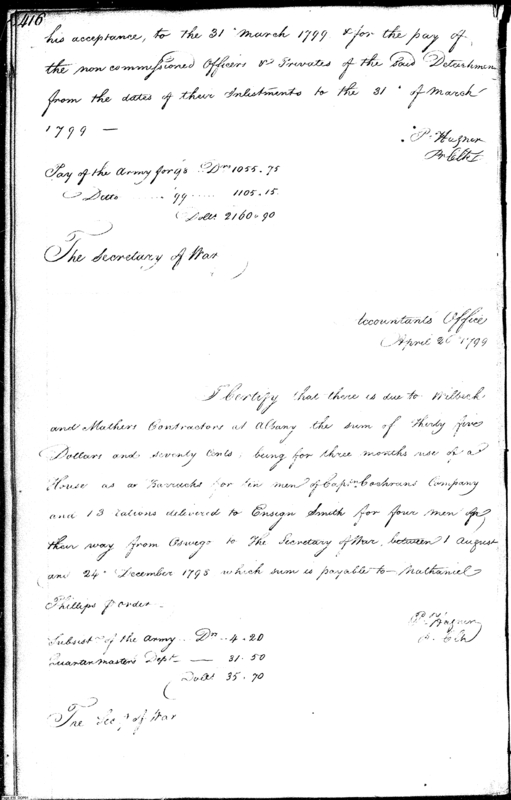 416
his acceptance, to the 31 March 1799 & for the pay of
the non commissioned Officers & Privates of the Said Detachmen
from the dates of their Inlistments to the 31 of March
1799 —
P. Hagner
P. Clk
Pay of the Army for 98 Drs 1055.75
Ditto 99 ..... 1105.15
Dolls 2160.90
The Secretary of War
Accountants Office
April 26 1799
I Certify that there is due to Wilbeck
and Mather Contractors at Albany the sum of thirty five
Dollars and seventy Cents, being for three months use of a
House as a Barracks for ten men of Capt. Cochrans Company
and 13 rations delivered to Ensign Smith for four men on
their way from Oswego to The Secretary of War, between 1 August
and 24 December 1798 which sum is payable to Nathaniel
Phillips order.
P. Hagner
P. Clk
Subsist of the Army Drs 4.20
Quarter Masters Dept — 31.50
Dolls 35.70
The Secy of War